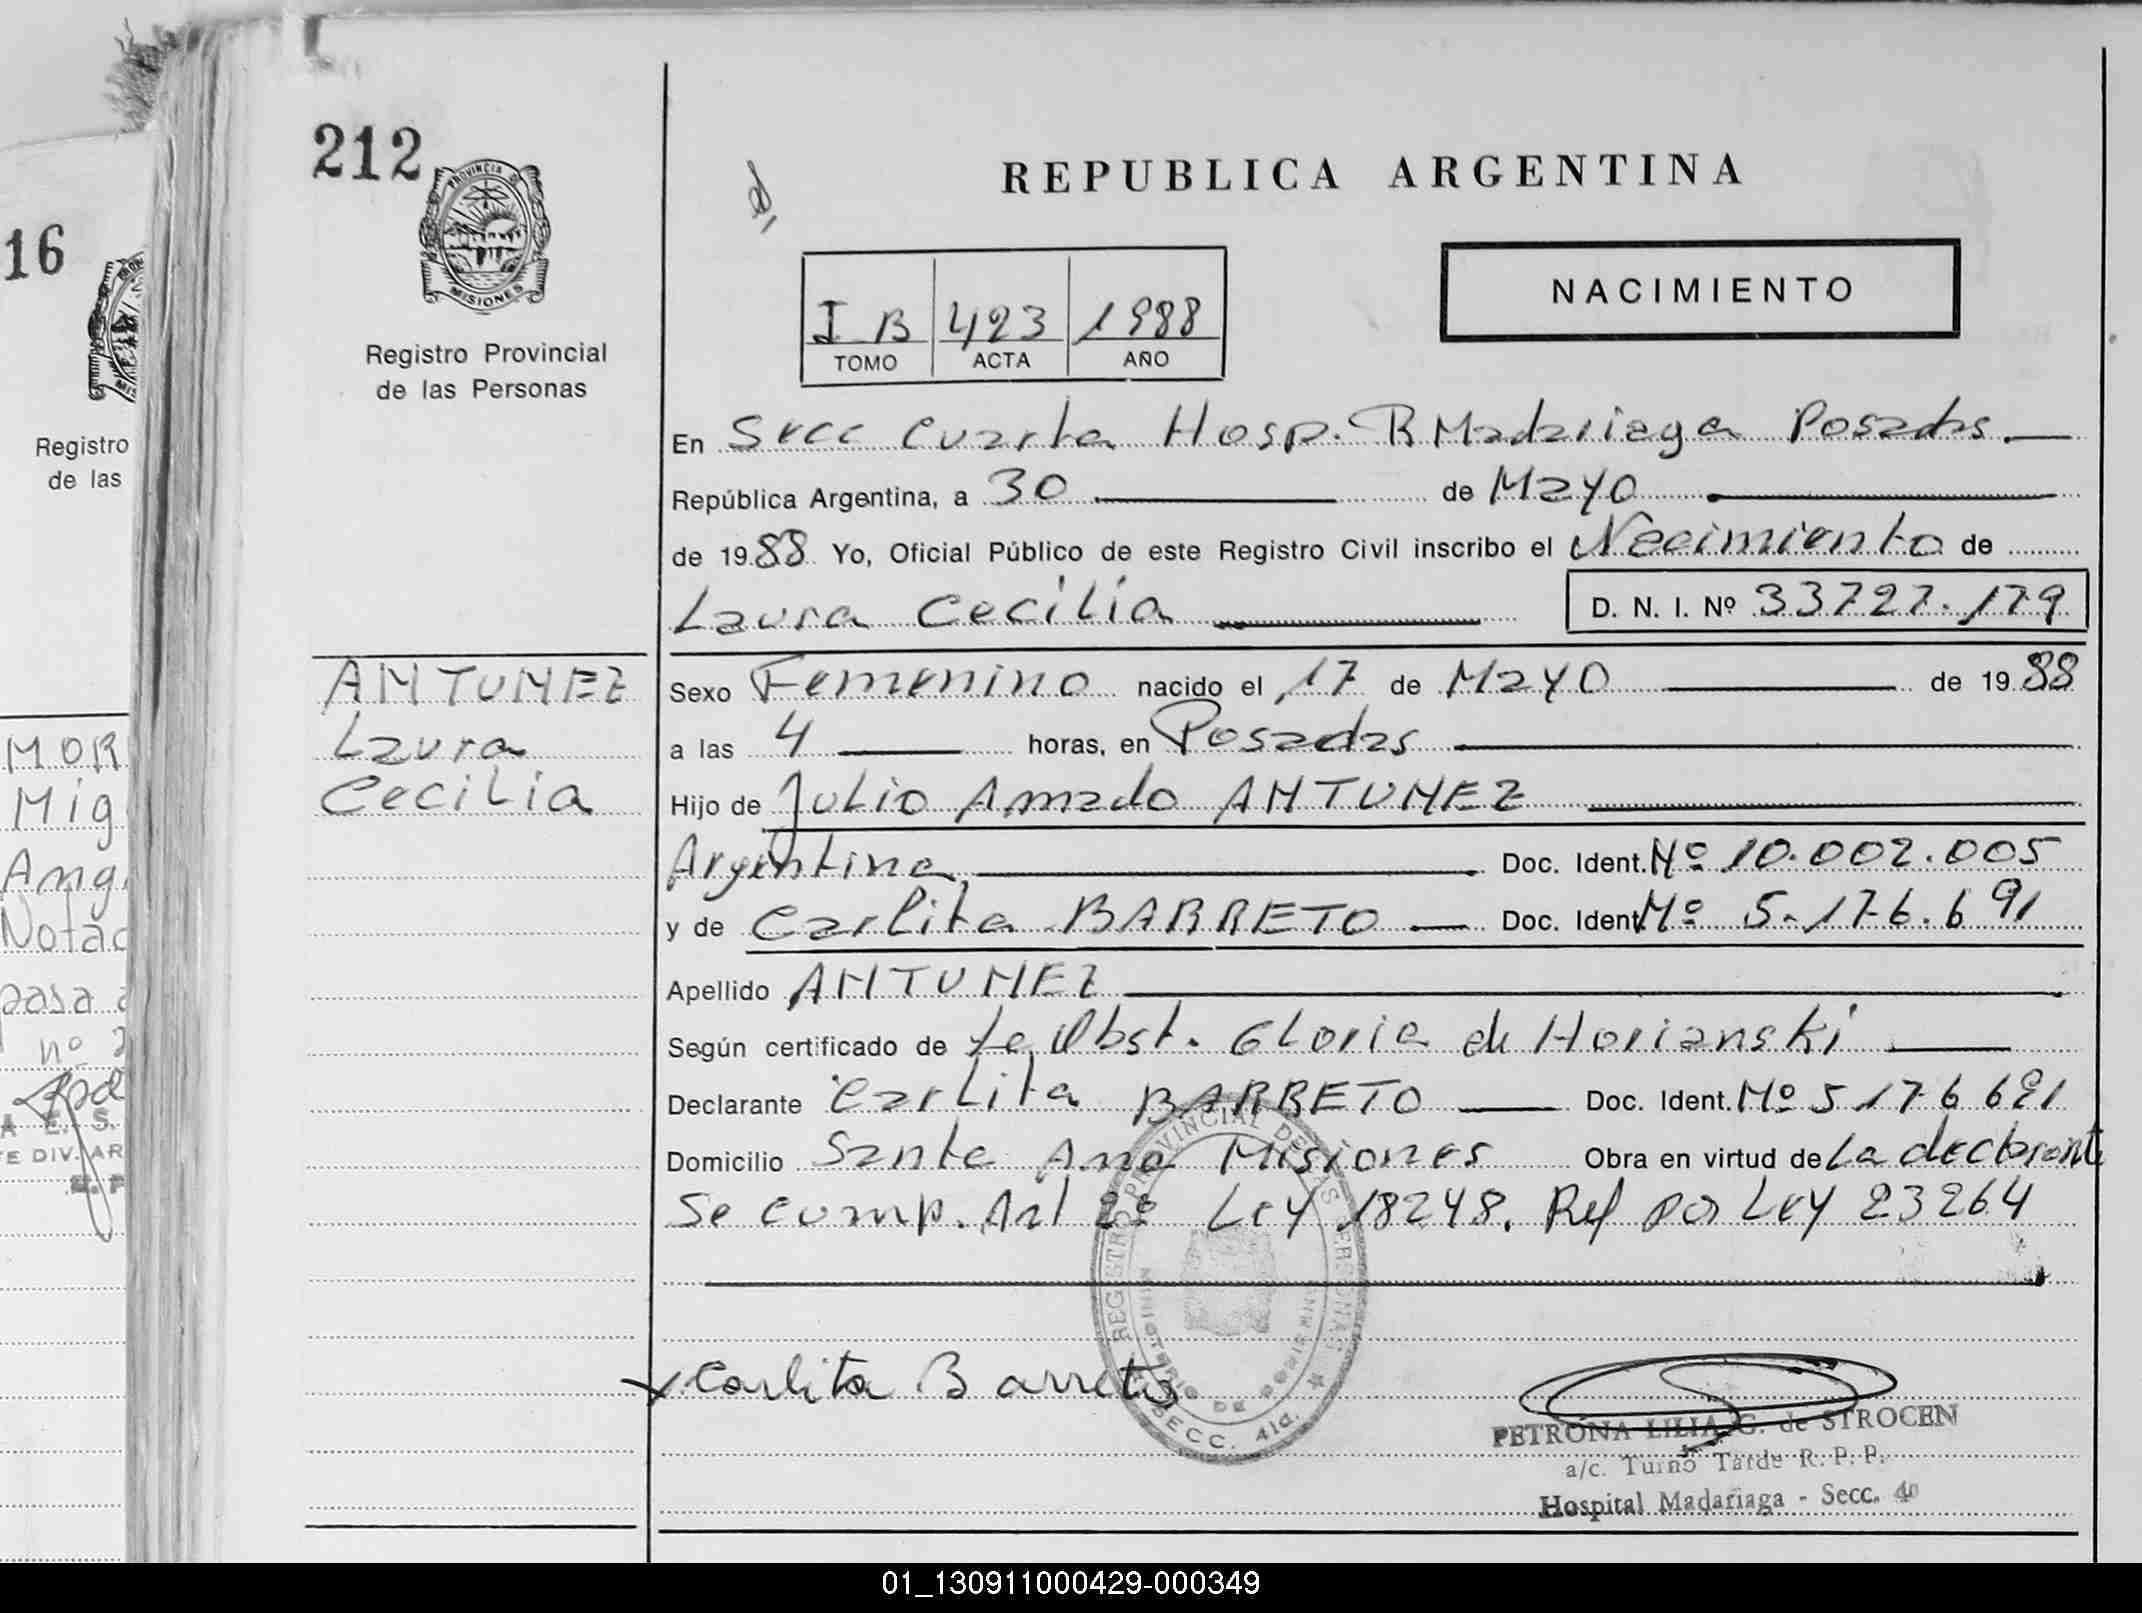 212
PROVINCIA D
MISIONES
Registro Provincial
de las Personas
REPUBLICA ARGENTINA
NACIMIENTO
I B 423 1988
TOMO ACTA AÑO
En Secc Cuarta Hosp. R Madariaga Posadas.
República Argentina, a 30 de Mayo
de 1988 Yo, Oficial Público de este Registro Civil inscribo el Nacimiento de
Laura Cecilia D. N. I. Nº 33727.179
ANTUNEZ
Laura
Cecilia
Sexo Femenino nacido el 17 de Mayo de 1988
a las 4 horas, en Posadas
Hijo de Julio Amado ANTUNEZ
Argentina Doc. Ident. Nº 10.002.005
y de Carlita BARRETO Doc. Ident Nº 5.176.691
Apellido ANTUNEZ
Según certificado de La Obst. Gloria de Horianski
Declarante Carlita BARRETO Doc. Ident. Nº 5 176 691
Domicilio Santa Ana Misiones Obra en virtud de La declarante
Se cump. Art 2º Ley 18248. Ref por Ley 23264
REGISTRO PROVINCIAL DE LAS PERSONAS
MINISTERIO DE GOBIERNO
SECC. 4ta.
x Carlita Barreto
PETRONA LILIA G. de STROCEN
a/c. Turno Tarde R. P. P.
Hospital Madariaga - Secc. 4a
16
Registro
de las
MOR
Mig
Ang
Notac
pasa a
nº 2
A E. S.
E DIV. AR
01_130911000429-000349